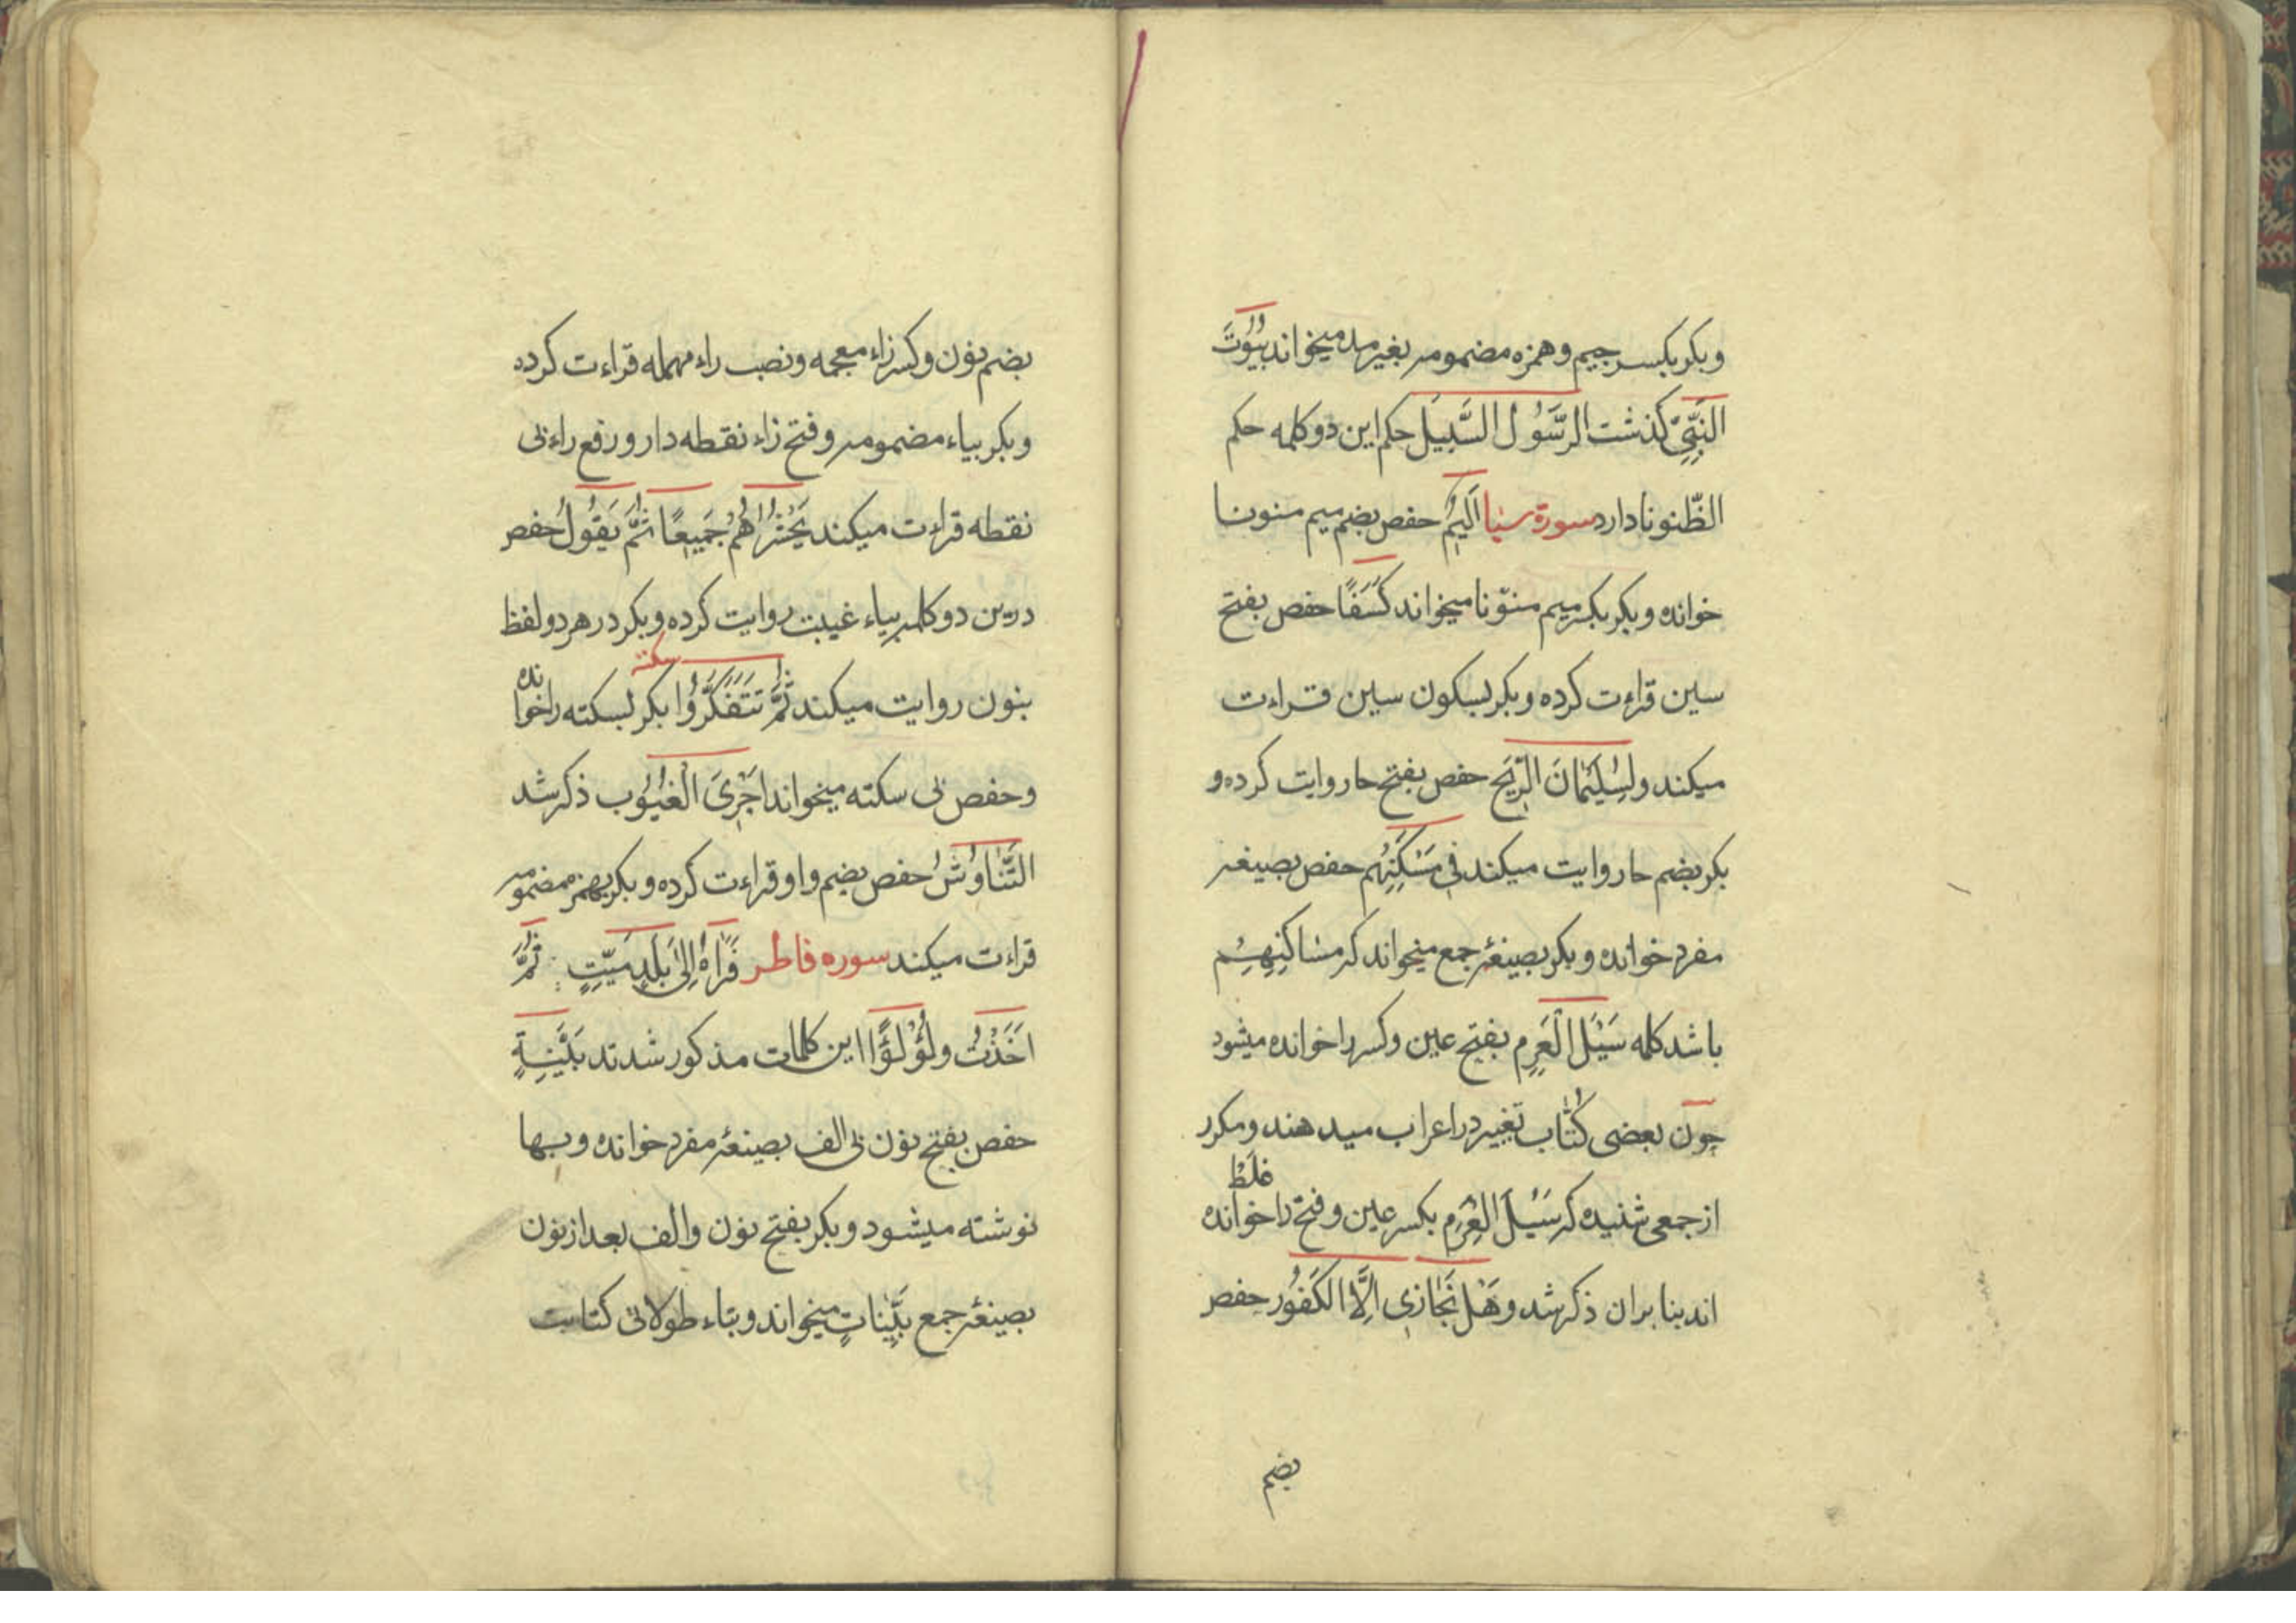 وبکر بکسر جیم وهمزه مضمومه بغیر مد میخواند بُیُوتَ
النَّبِیِّ کذشت الرَّسُولَ السَّبِیلَ حکم این دو کلمه حکم
الظّنونا دارد سورة سبا اَلِیمٌ حفص بضم میم منونا
خوانده وبکر بکسر میم منوّنا میخواند کِسَفًا حفص بفتح
سین قراءت کرده وبکر بسکون سین قراءت
میکند ولِسُلَیْمٰانَ الرّیحَ حفص بفتح حا روایت کرده و
بکر بضم حا روایت میکند فی مَسْکَنِهِم حفص بصیغه
مفرد خوانده وبکر بصیغهٔ جمع میخواند که مسٰاکنِهِمْ
باشد کلمه سَیْلَ الْعَرِمِ بفتح عین وکسر را خوانده میشود
چون بعضی کُتّٰاب تغییر در اعراب میدهند ومکرر
از جمعی شنیده که سَیْلَ الْعِرَمِ بکسر عین وفتح را غلَطْ خوانده
اند بنا بران ذکر شد وهَلْ نُجٰازی اِلَّا الکَفُور حفص
بضم
بضم نون وکسر زاء معجمه ونصب راء مهمله قراءت کرده
وبکر بیاء مضمومه وفتح زاء نقطه دار ورفع راء بی
نقطه قراءت میکند یَحْشُرُهُمْ جَمیعًا ثُمَّ یَقُولُ حفص
درین دو کلمه بیاء غیبت روایت کرده وبکر در هر دو لفظ
بنون روایت میکند ثُمَّ تَتَفَکَّرُوا سکته بکر بسکته را خوانده
وحفص بی سکته میخواند اَجْرِیَ الْغُیُوب ذکر شد
التَّنٰاوُشُ حفص بضم واو قراءت کرده وبکر بهمزه مضمومه
قراءت میکند سوره فاطر فَرَاٰهُ اِلیٰ بَلَدٍ مَیّتٍ ثُمَّ
اَخَذْتُ ولُؤْلُؤًا این کلمات مذکور شدند بَیِّنَةٍ
حفص بفتح نون بی الف بصیغهٔ مفرد خوانده وبها
نوشته میشود وبکر بفتح نون والف بعد از نون
بصیغهٔ جمع بَیِّنٰاتٍ میخواند وبتاء طولانی کتابت